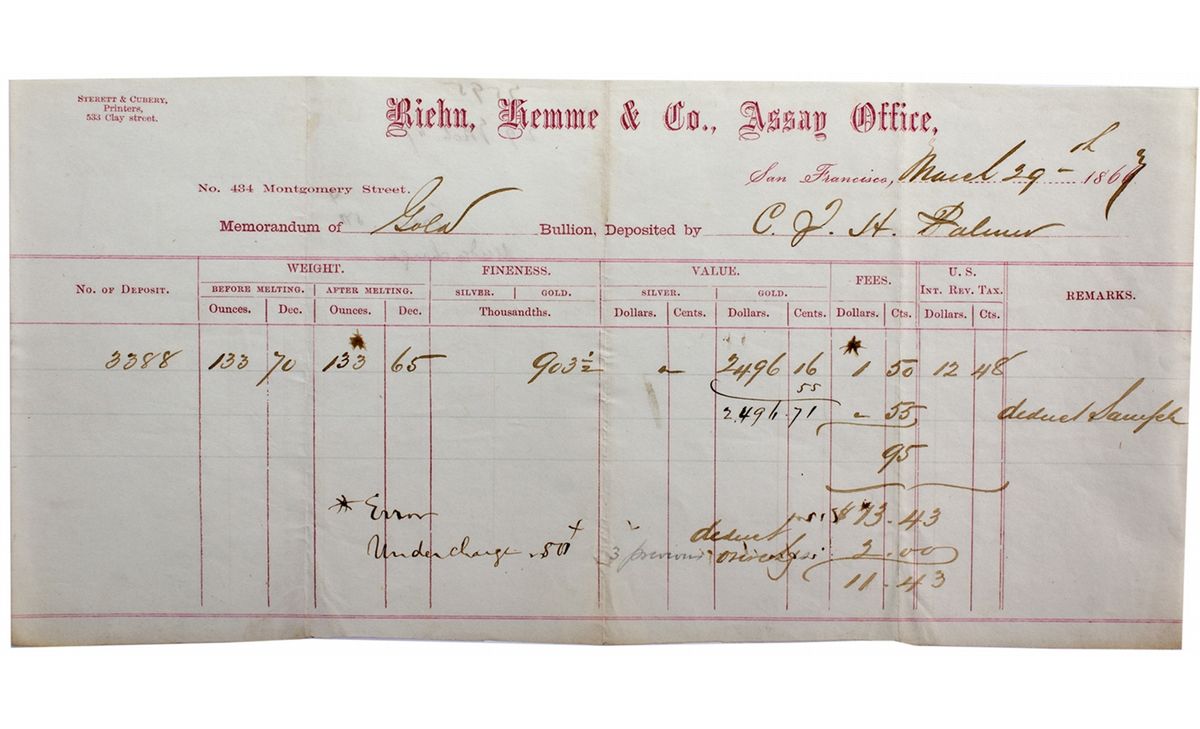 STERETT & CUBERY,
Printers,
533 Clay street.
Riehn, Hemme & Co., Assay Office,
San Francisco, March 29th 1867
No. 434 Montgomery Street.
Memorandum of Gold Bullion, Deposited by C. J. H. Palmer
No. of Deposit. WEIGHT. FINENESS. VALUE. FEES. U. S. INT. REV. TAX. REMARKS.
BEFORE MELTING. AFTER MELTING. SILVER. GOLD. SILVER. GOLD.
Ounces. Dec. Ounces. Dec. Thousandths. Dollars. Cents. Dollars. Cents. Dollars. Cts. Dollars. Cts.
3388 133 70 133 65 903½ " 2496 16 1 50 12 48
55
2.496.71 " 55 deduct Sample
95
* Error $13.43
Undercharge .50 3 previous deduct 2.00
11.43